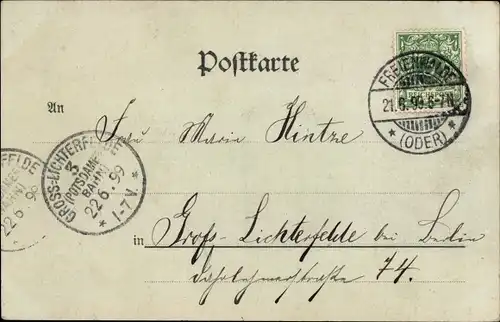 Postkarte
FREIENWALDE
21.6.99.6-7N.
* (ODER) *
An
Frau Marie Hintze
FELDE
22 6. 99
GROSS-LICHTERFELDE
3
(POTSDAMER
BAHN)
22 6. 99
* 1-7V. *
in Groß-Lichterfelde bei Berlin
74.